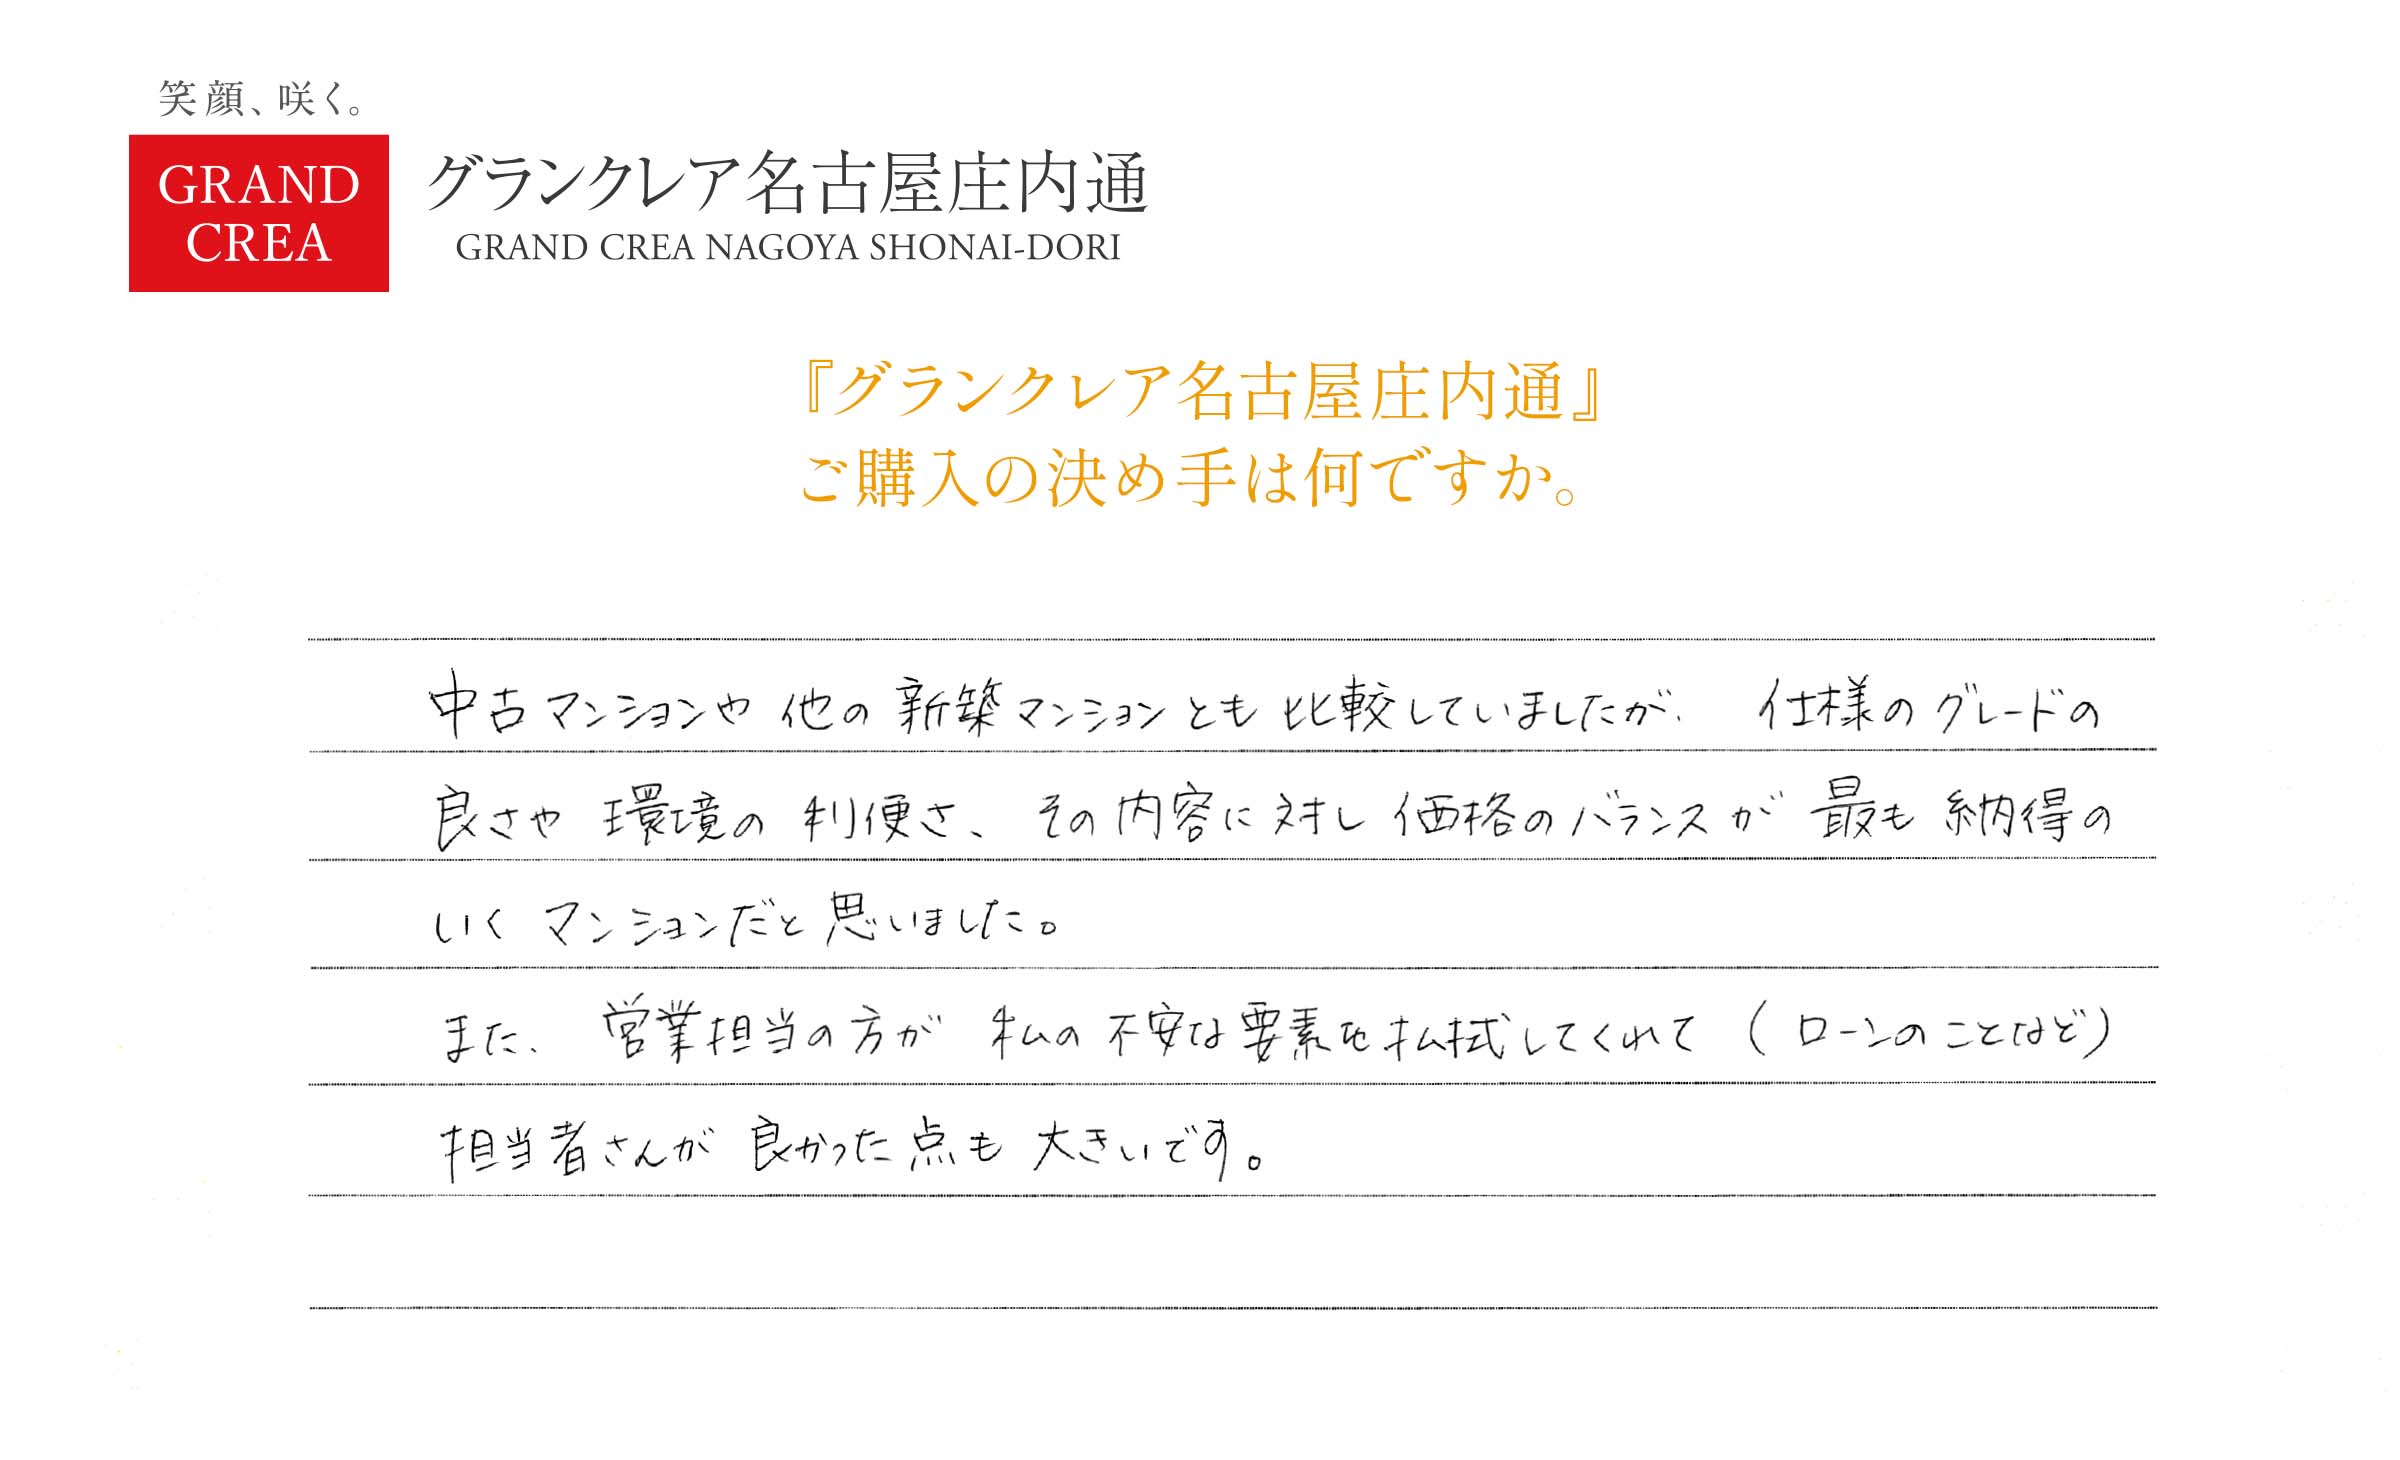 笑顔、咲く。
GRAND
CREA
グランクレア名古屋庄内通
GRAND CREA NAGOYA SHONAI-DORI
『グランクレア名古屋庄内通』
ご購入の決め手は何ですか。
中古マンションや他の新築マンションとも比較していましたが、仕様のグレードの
良さや環境の利便さ、その内容に対し価格のバランスが最も納得の
いくマンションだと思いました。
また、営業担当の方が私の不安な要素を払拭してくれて（ローンのことなど）
担当者さんが良かった点も大きいです。